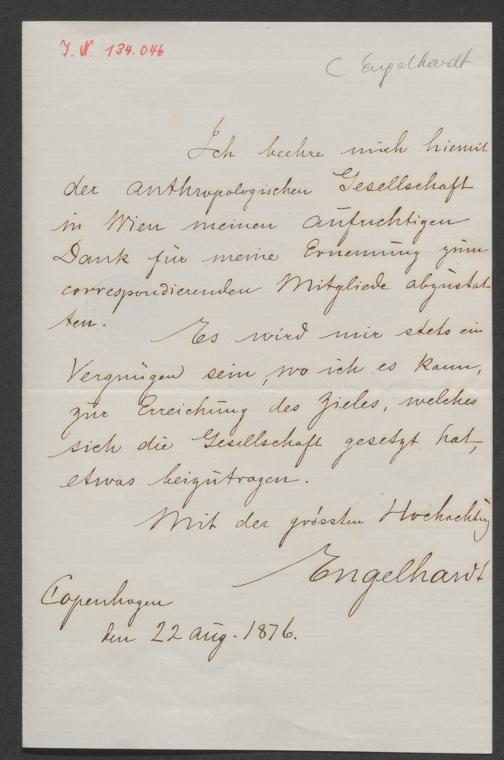 J. N. 134.046
C Engelhardt
Ich beehre mich hiemit
der anthropologischen Gesellschaft
in Wien meinen aufrichtigen
Dank für meine Ernennung zum
correspondierenden Mitgliede abzustat-
ten.
Es wird mir stets ein
Vergnügen sein, wo ich es kann,
zur Erreichung des Zieles, welches
sich die Gesellschaft gesetzt hat,
etwas beizutragen.
Mit der grössten Hochachtung
Engelhardt
Copenhagen
den 22 aug. 1876.